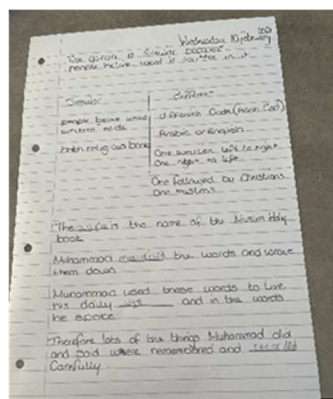 Wednesday 10 February
The Quran is similar because
people believe what is written in it
Similar
Different
people believe what
different Gods (Arabic God)
written inside
Arabic or English
both religious book
One written left to right
One right to left
One followed by Christians
One muslims
The is the name of the Muslim holy
book
Muhammad the words and wrote
them down.
Muhammad used these words to live
his daily life and in the words
he spoke
Therefore lots of the things Muhammad did
and said where remembered and
Carefully.